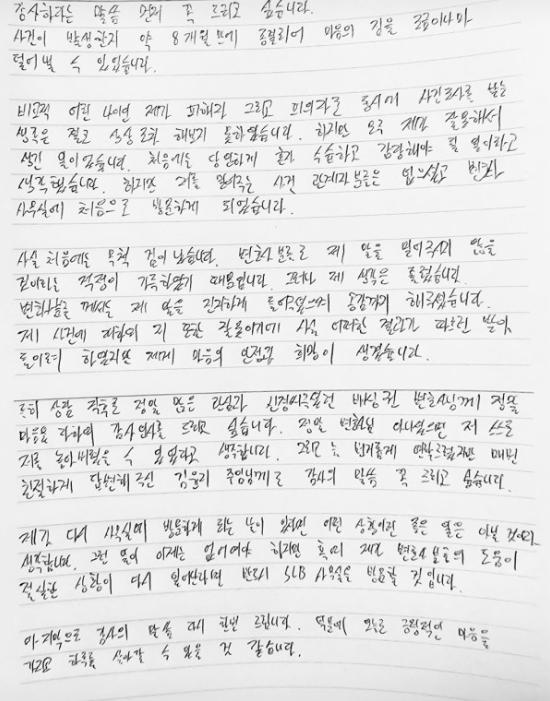 감사하다는 말씀 먼저 꼭 드리고 싶습니다.
사건이 발생한지 약 8개월만에 종결되어 마음의 짐을 조금이나마
덜어낼 수 있었습니다.
비교적 어린 나이인 제가 피해자 그리고 피의자로 동시에 사건조사를 받는
생각은 절대 상상조차 해보지 못하였습니다. 하지만 모두 제가 잘못해서
생긴 일이었습니다. 처음에는 당연하게 혼자 수습하고 감당해야 될 일이라고
생각했습니다. 하지만 저를 믿어주는 사건 관계자분들은 없으셨고 변호사
사무실에 처음으로 방문하게 되었습니다.
사실 처음에는 무척 겁이 났습니다. 변호사분들도 제 말을 믿어주지 않을
것이라는 걱정이 가득하였기 때문입니다. 그러나 제 생각은 틀렸습니다.
변호사님들께서는 제 말을 진지하게 들어주셨으며 공감까지 해주셨습니다.
제 사건에 대하여 저 또한 잘못이기에 사실 어떠한 결과가 따르던 받아
들이려 하였지만 제게 마음의 안정과 희망이 생겼습니다.
특히 상담 직후로 정말 많은 관심과 신경써주셨던 배성권 변호사님께 정말
마음을 다하여 감사인사를 드리고 싶습니다. 정말 변호사님 아니었으면 저 스스로
저를 놓아버렸을 수 있었다고 생각합니다. 그리고 늘 번거롭게 연락드렸지만 매번
친절하게 답변해주신 김윤지 주임님께도 감사의 말씀 꼭 드리고 싶습니다.
제가 다시 사무실에 방문하게 되는 날이 있다면 어떤 상황이던 좋은 일은 아닐 것이라
생각합니다. 그런 일이 이제는 없어야 하지만 혹여 제가 변호사 분들의 도움이
절실한 상황이 다시 일어난다면 반드시 SLB 사무실을 방문할 것입니다.
마지막으로 감사의 말씀 다시 한번 드립니다. 덕분에 앞으로 긍정적인 마음을
가지고 하루를 살아갈 수 있을 것 같습니다.